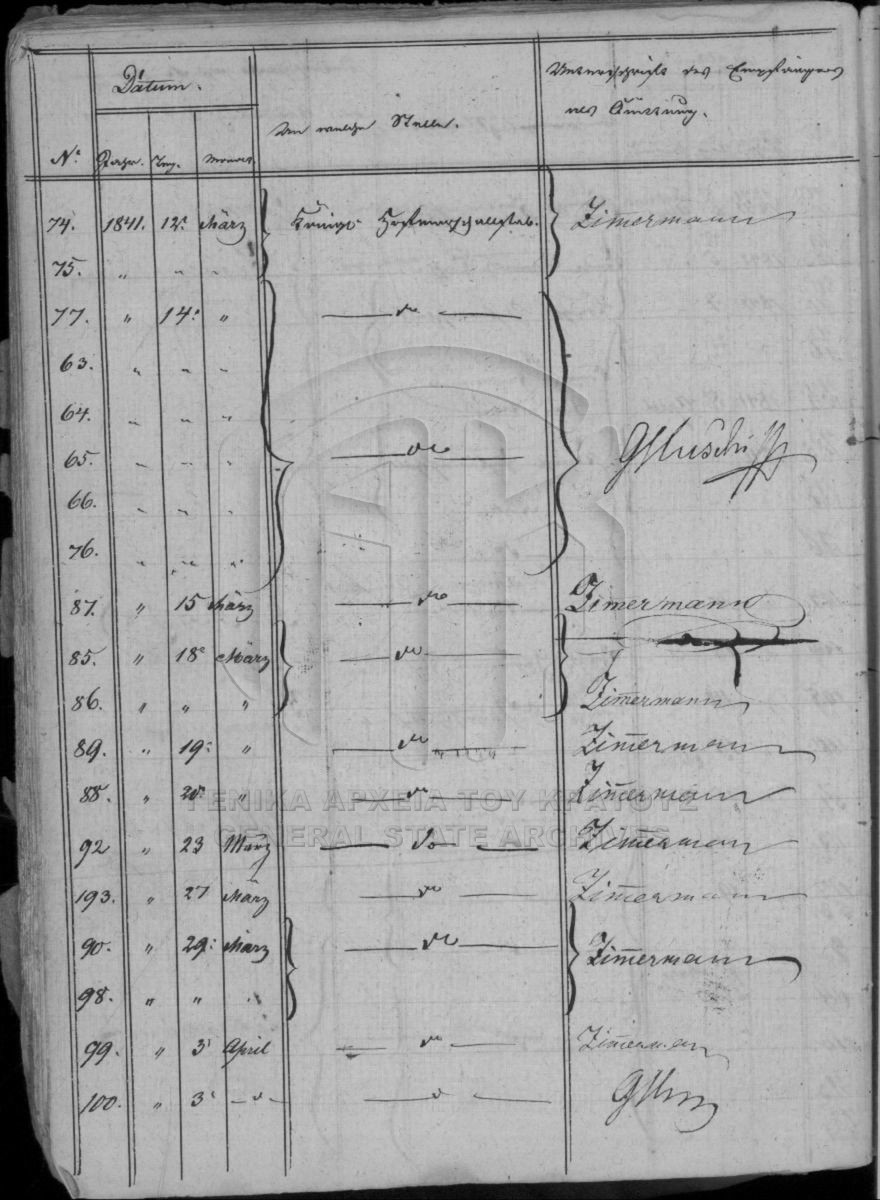 Datum.
An welche Stelle.
Unterschrift des Empfängers
als Quittung.
No. Jahr. Tag. Monat.
74. 1841. 12. März Königl. Hofmarschallstab. Zimermann
75. " " "
77. " 14. " do
63. " " "
64. " " "
65. " " " do
66. " " "
76. " " "
87. " 15 März do Zimermann
85. " 18 März do
86. " " " Zimmermann
89. " 19. " do Zimmermann
88. " 20. " do Zimmermann
ΓΕΝΙΚΑ ΑΡΧΕΙΑ ΤΟΥ ΚΡΑΤΟΥΣ
GENERAL STATE ARCHIVES
92 " 23 März do Zimmermann
193. " 27 März do Zimmermann
90. " 29. März do Zimmermann
98. " " "
99. " 3 April do Zimmermann
100. " 3 do do